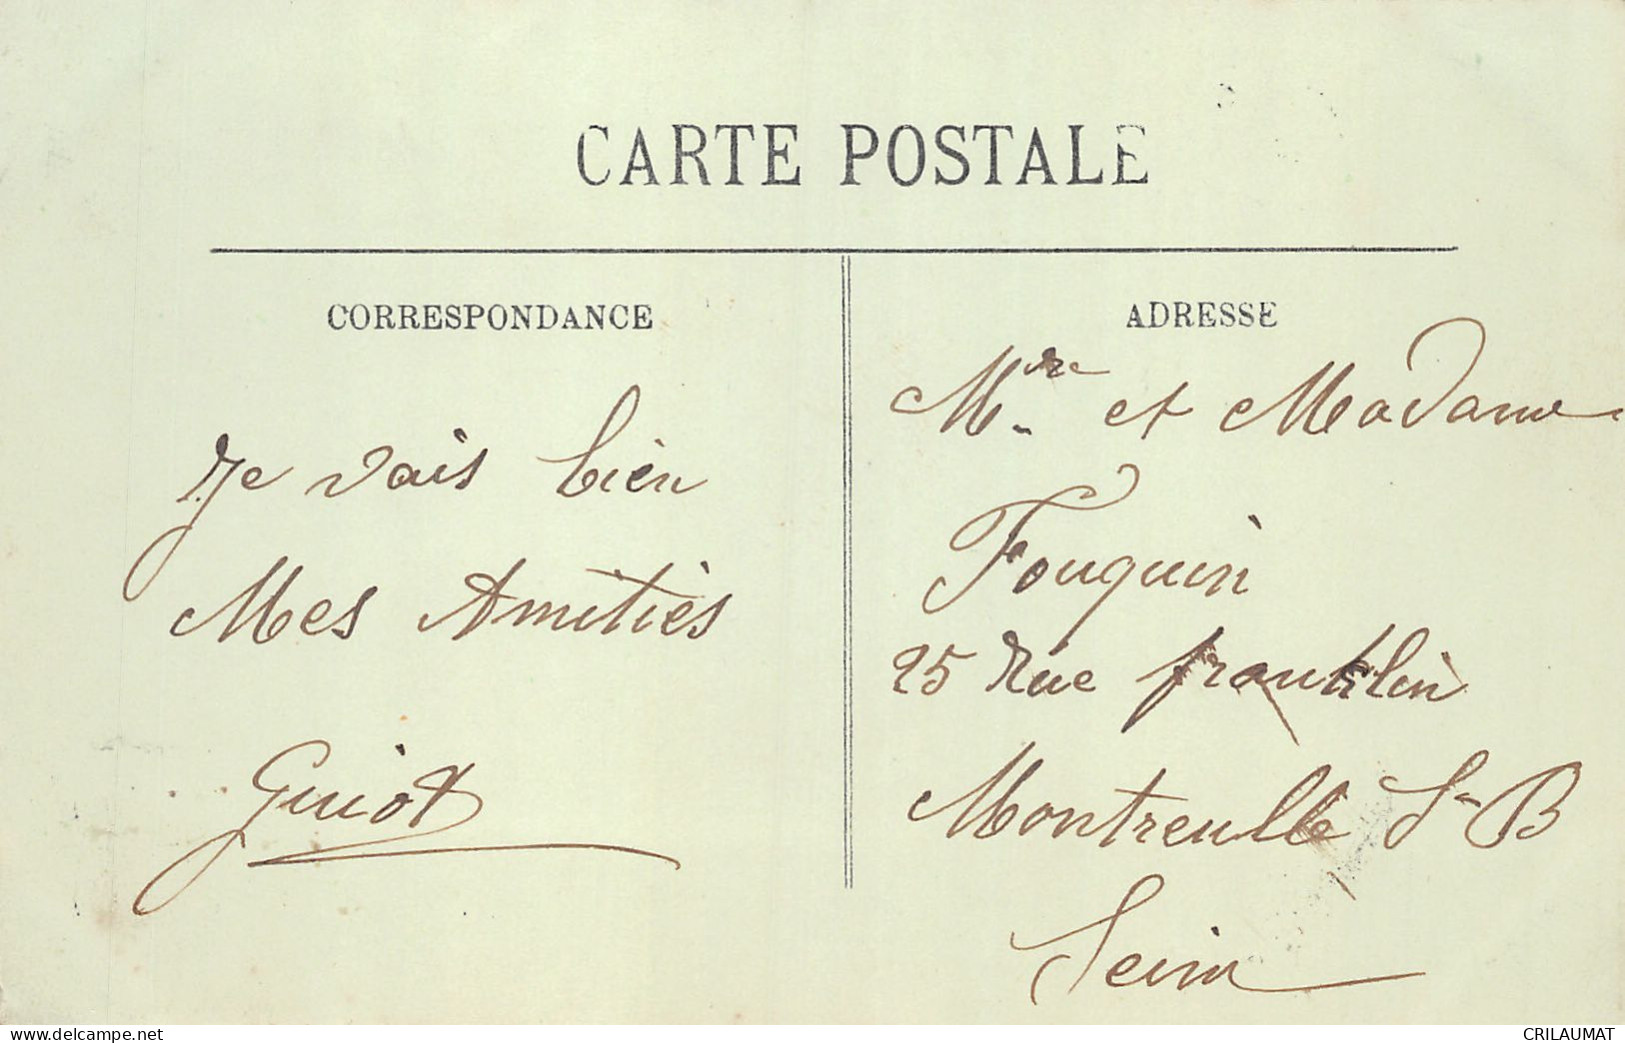 CARTE POSTALE
CORRESPONDANCE
Je vais bien
Mes Amitiés
Guiot
ADRESSE
Mre et Madame
Fouquin
25 Rue franklin
Montreulle S-B
Seine
delcampe.net
CRILAUMAT